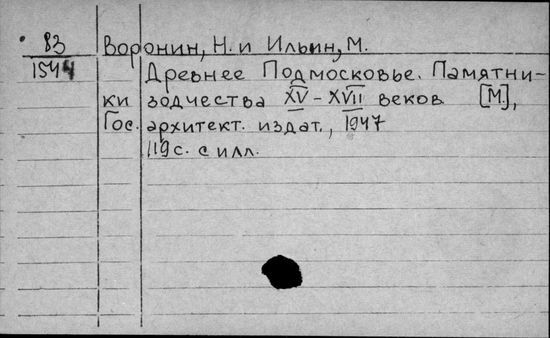 83
1544
Воронин, Н. и Ильин, М.
Древнее Подмосковье. Памятни-
ки зодчества XV – XVII веков [М],
Гос. архитект. издат., 1947
119 с. с илл.